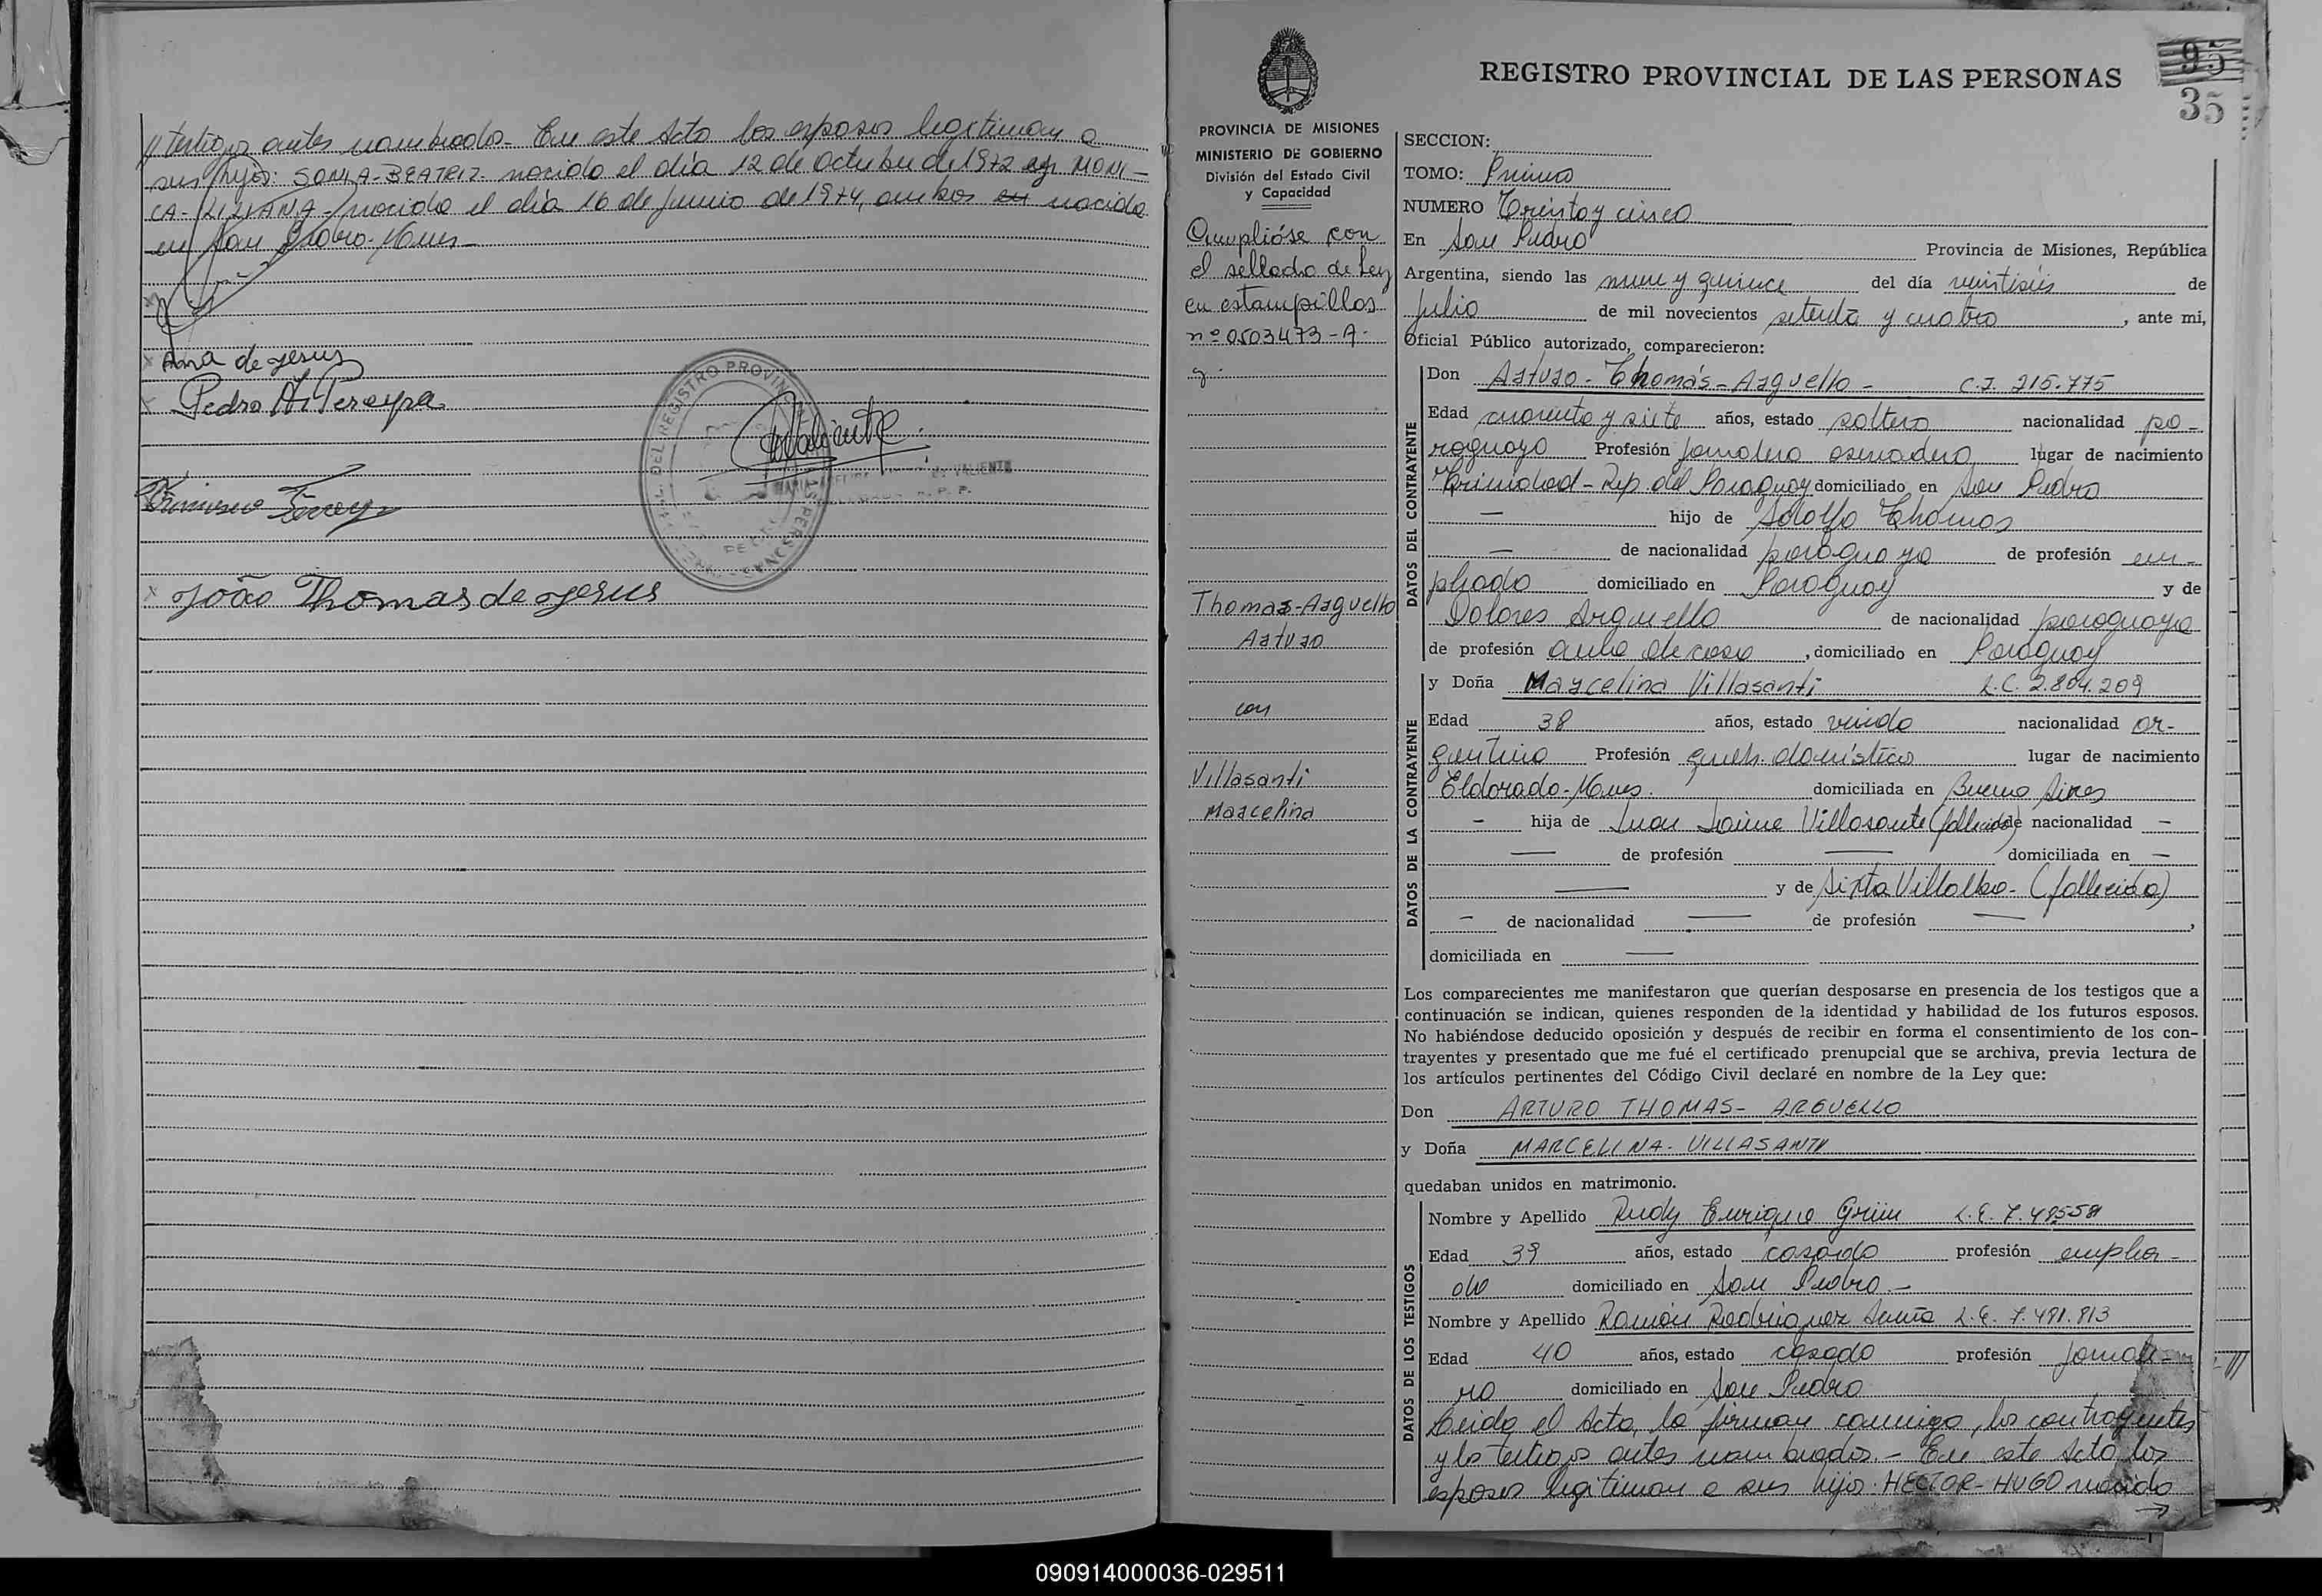 // testigos antes nombrados.- En este Acto los esposos legitiman a
sus hijos: SONIA-BEATRIZ- nacida el día 12 de octubre de 1972 y MONI-
CA-LILIANA- nacida el día 16 de Junio de 1974, ambos en nacida
en San Pedro-Mnes-
Ana de Jesus
Pedro A. Pereyra
João Thomas de Jesus
REGISTRO PROVINCIAL DE LAS PERSONAS
95
35
PROVINCIA DE MISIONES
MINISTERIO DE GOBIERNO
División del Estado Civil
y Capacidad
Cumplióse con
el sellado de Ley
en estampillas
nº 0503473-A-
Thomas-Arguello
Arturo
con
Villasanti
Marcelina
SECCION:
TOMO: Primero
NUMERO Treinta y cinco
En San Pedro Provincia de Misiones, República
Argentina, siendo las nueve y quince del día veintiséis de
Julio de mil novecientos setenta y cuatro, ante mi,
Oficial Público autorizado, comparecieron:
DATOS DEL CONTRAYENTE
Don Arturo-Thomás-Arguello- C.I. 215.775
Edad cuarenta y siete años, estado soltero nacionalidad pa-
raguaya Profesión jornalero lugar de nacimiento
Trinidad-Rep. del Paraguay domiciliado en San Pedro
— hijo de Adolfo Thomas
— de nacionalidad paraguaya de profesión em-
pleado domiciliado en Paraguay y de
Dolores Arguello de nacionalidad paraguaya
de profesión ama de casa, domiciliado en Paraguay
DATOS DE LA CONTRAYENTE
y Doña Marcelina Villasanti L.C. 2.804.209
Edad 38 años, estado viuda nacionalidad ar-
gentina Profesión queh. domésticos lugar de nacimiento
Eldorado-Mnes. domiciliada en Buenos Aires
- hija de Juan Jaime Villasante (fallecido) de nacionalidad —
— de profesión — domiciliada en —
— y de Sixta Villalba- (fallecida)
- de nacionalidad — de profesión —,
domiciliada en —
Los comparecientes me manifestaron que querían desposarse en presencia de los testigos que a
continuación se indican, quienes responden de la identidad y habilidad de los futuros esposos.
No habiéndose deducido oposición y después de recibir en forma el consentimiento de los con-
trayentes y presentado que me fué el certificado prenupcial que se archiva, previa lectura de
los artículos pertinentes del Código Civil declaré en nombre de la Ley que:
Don ARTURO THOMAS- ARGUELLO
y Doña MARCELINA- VILLASANTI
quedaban unidos en matrimonio.
DATOS DE LOS TESTIGOS
Nombre y Apellido Rudy Enrique Grim L.E.
Edad 39 años, estado casado profesión emplea-
do domiciliado en San Pedro.-
Nombre y Apellido Ramón Rodriguez L.E. 7.491.813
Edad 40 años, estado casado profesión jornale-
ro domiciliado en San Pedro
Leida el Acta, la firman conmigo, los contrayentes
y los testigos antes nombrados.- En este Acto los
esposos legitiman a sus hijos: HECTOR-HUGO nacido
→
090914000036-029511